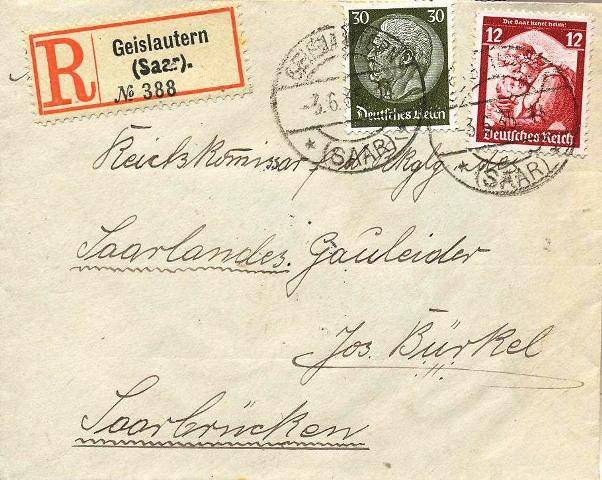 R
Geislautern
(Saar).
№ 388
30 30
Deutsches Reich
Die Saar kehrt heim!
12 12
Deutsches Reich
-3.6.
* (SAAR) *
* (SAAR)
Reichskomissar
Saarlandes. Gauleider
Jos. Bürkel
Saarbrücken